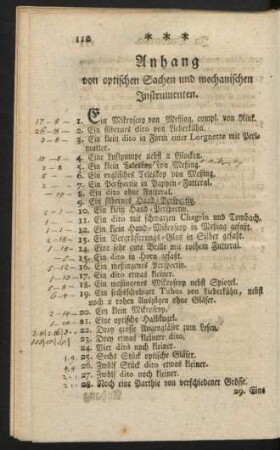 112 * * *
Anhang
von optischen Sachen und mechanischen
Instrumenten.
17 - 8 - 1. Ein Mikroscop von Meßing, compl. von
26 - 18 - 2. Ein silbernes dito von Lieberkühn.
3 - 8 - 3. Ein klein dito in Form einer Lorgnette mit Perl-
mutter.
10 - 8 - 4. Eine Luftpumpe nebst 2 Glocken.
2 - 8 - 5. Ein klein Teleskop von Meßing.
6 - 8 - 6. Ein englisches Teleskop von Meßing.
2 - - 7. Ein Perspectiv in Pappen-Futteral.
- 19 - 8. Ein dito ohne Futteral.
9. Ein silbernes Hand-Perspectiv.
10. Ein klein Hand-Perspectiv.
11. Ein dito mit schwarzen Chagrin und Tomback.
12. Ein klein Hand-Mikroscop in Meßing gefaßt.
- 2 - 18 - 13. Ein Vergrösserungs-Glas in Silber gefaßt.
14. Eine sehr gute Brille mit rothem Futteral.
15. Ein dito in Horn gefaßt.
5 - 12 - 16. Ein meßingenes Perspectiv.
17. Ein dito etwas kleiner.
18. Ein meßingenes Mikroscop nebst Spiegel.
6 - 4 - 19. Ein sechsschuhiger Tubus von Lieberkühn, nebst
noch 2 rohen Auszügen ohne Gläser.
20. Ein klein Mikroskop.
21. Eine optische Halbkugel.
22. Drey grosse Augengläser zum Lesen.
23. Drey etwas kleinere dito.
24. Vier dito noch kleiner.
25. Sechs Stück optische Gläser.
26. Zwölf Stück dito etwas kleiner.
27. Zwölf dito noch kleiner.
28. Noch eine Parthie von verschiedener Grösse.
29. Eine